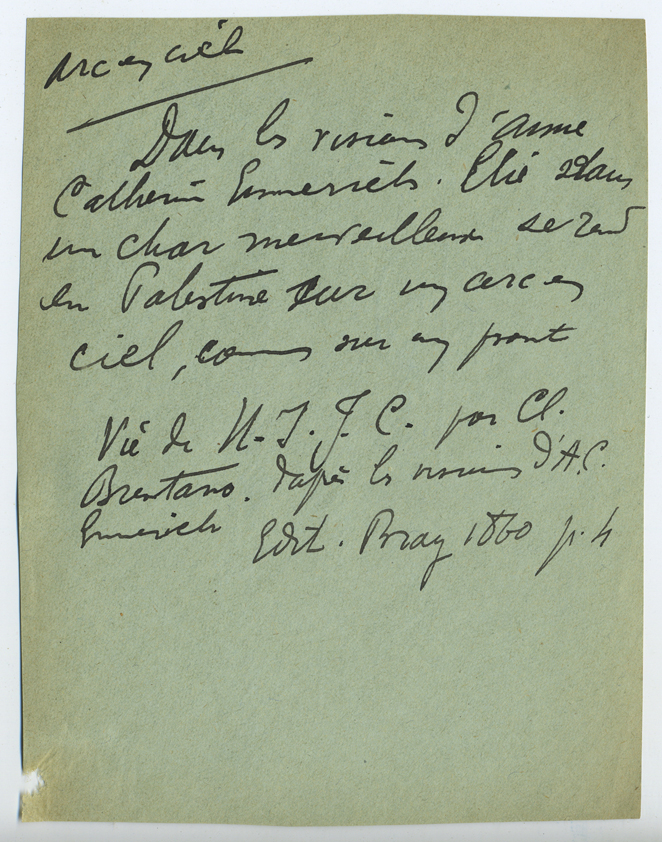 Arc en ciel
Dans les visions d'Anne
Catherine Emmerich. Elie dans
un char merveilleux se rend
en Palestine sur un arc en
ciel, comme sur un pont
Vie de N. S. J. C. par Cl.
Brentano. d'après les visions d'A. C.
Emmerich Edit. Bray 1860 p. 4